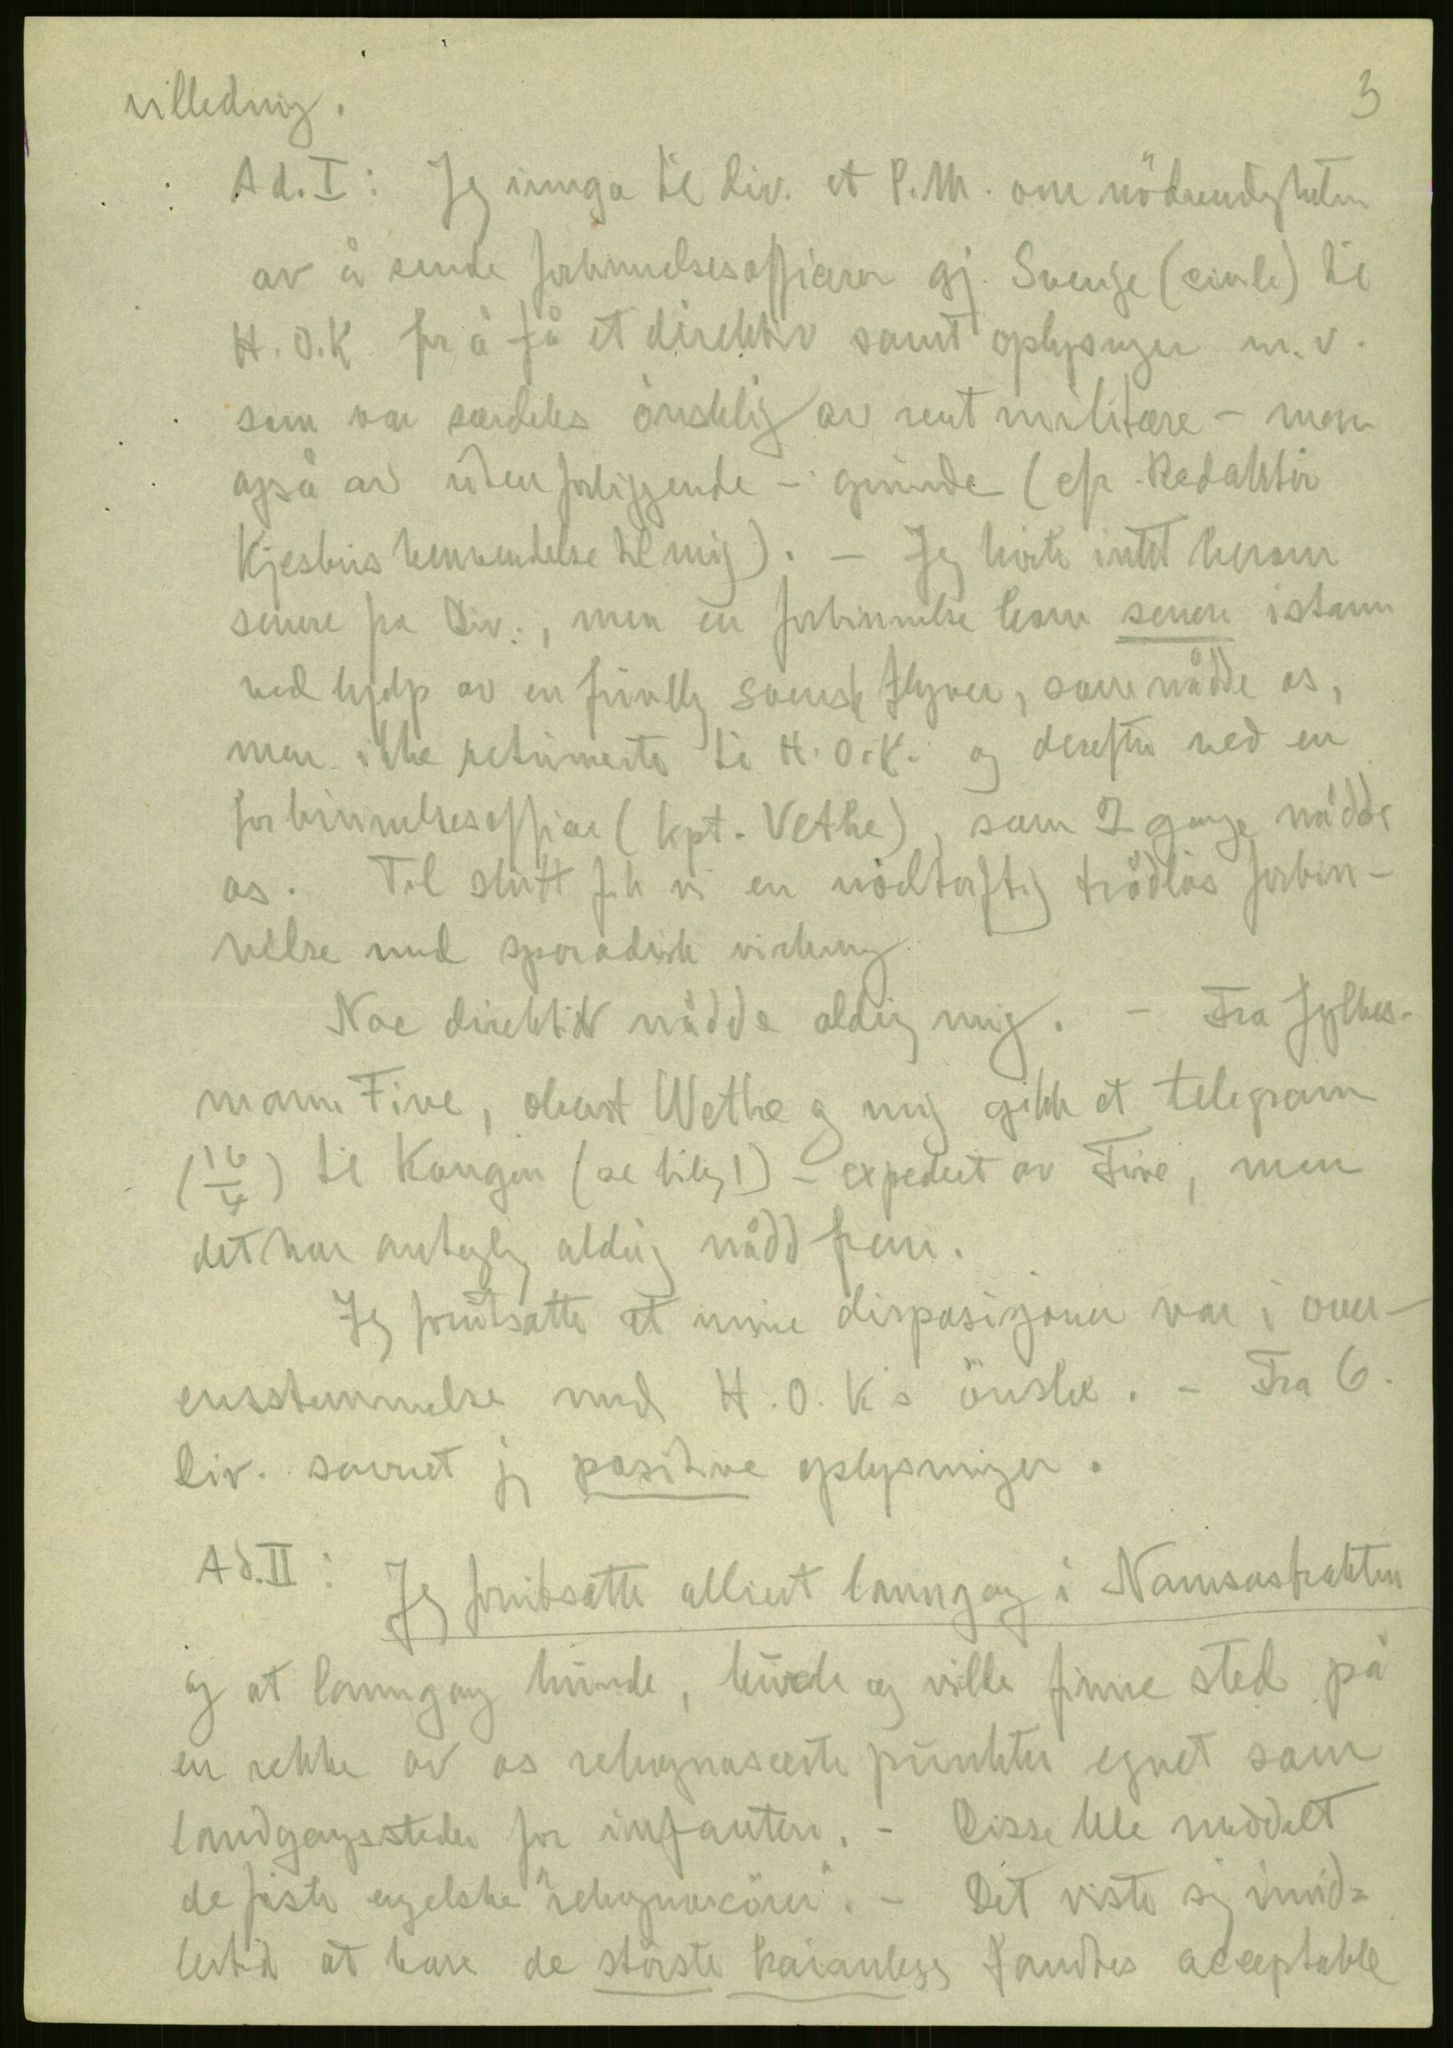 villedning.
3
Ad. I: Jeg innga til Div. et P.M. om nödvendigheten
av å sende forbinnelsesofficerer gj. Sverige (civile) til
H.O.K. for å få et direktiv samt oplysninger m.v.
som var særdeles önskelig av rent militære - men
også av utenforliggende - grunde (cfr. Redaktör
Kjesbus henvendelse til mig). - Jeg hörte intet herom
senere fra Div., men en forbinnelse kom senere istann
ved hjelp av en frivillig svensk flyver, som nådde os,
men ikke returnerte til H.O.K. og derefter ved en
forbinnelsesofficer (kpt. Vethe), som 2 gange nådde
os. Til slutt fik vi en nödtörftig trådlös forbin-
nelse med sporadisk virkning
Noe direktiv nådde aldrig mig. - Fra fylkes-
mann Five, oberst Wethe og mig gikk et telegram
(16/4) til Kongen (se bileg 1) - expedert av Five, men
det har antagelig aldrig nådd frem.
Jeg forutsatte at mine disposisjoner var i over-
ensstemmelse med H.O.K's önske. - Fra 6.
Div. savnet jeg positive oplysninger.
Ad. II: Jeg forutsatte alliert lanngang i Namsostrakten
og at lanngang kunde, burde og ville finne sted på
en rekke av os rekognoscerte punkter egnet som
landgangssteder for infanteri. - Disse ble meddelt
de första engelske "rekognoscörer". - Det viste sig imid-
lertid at bare de störste kaianlegg fandtes acceptable